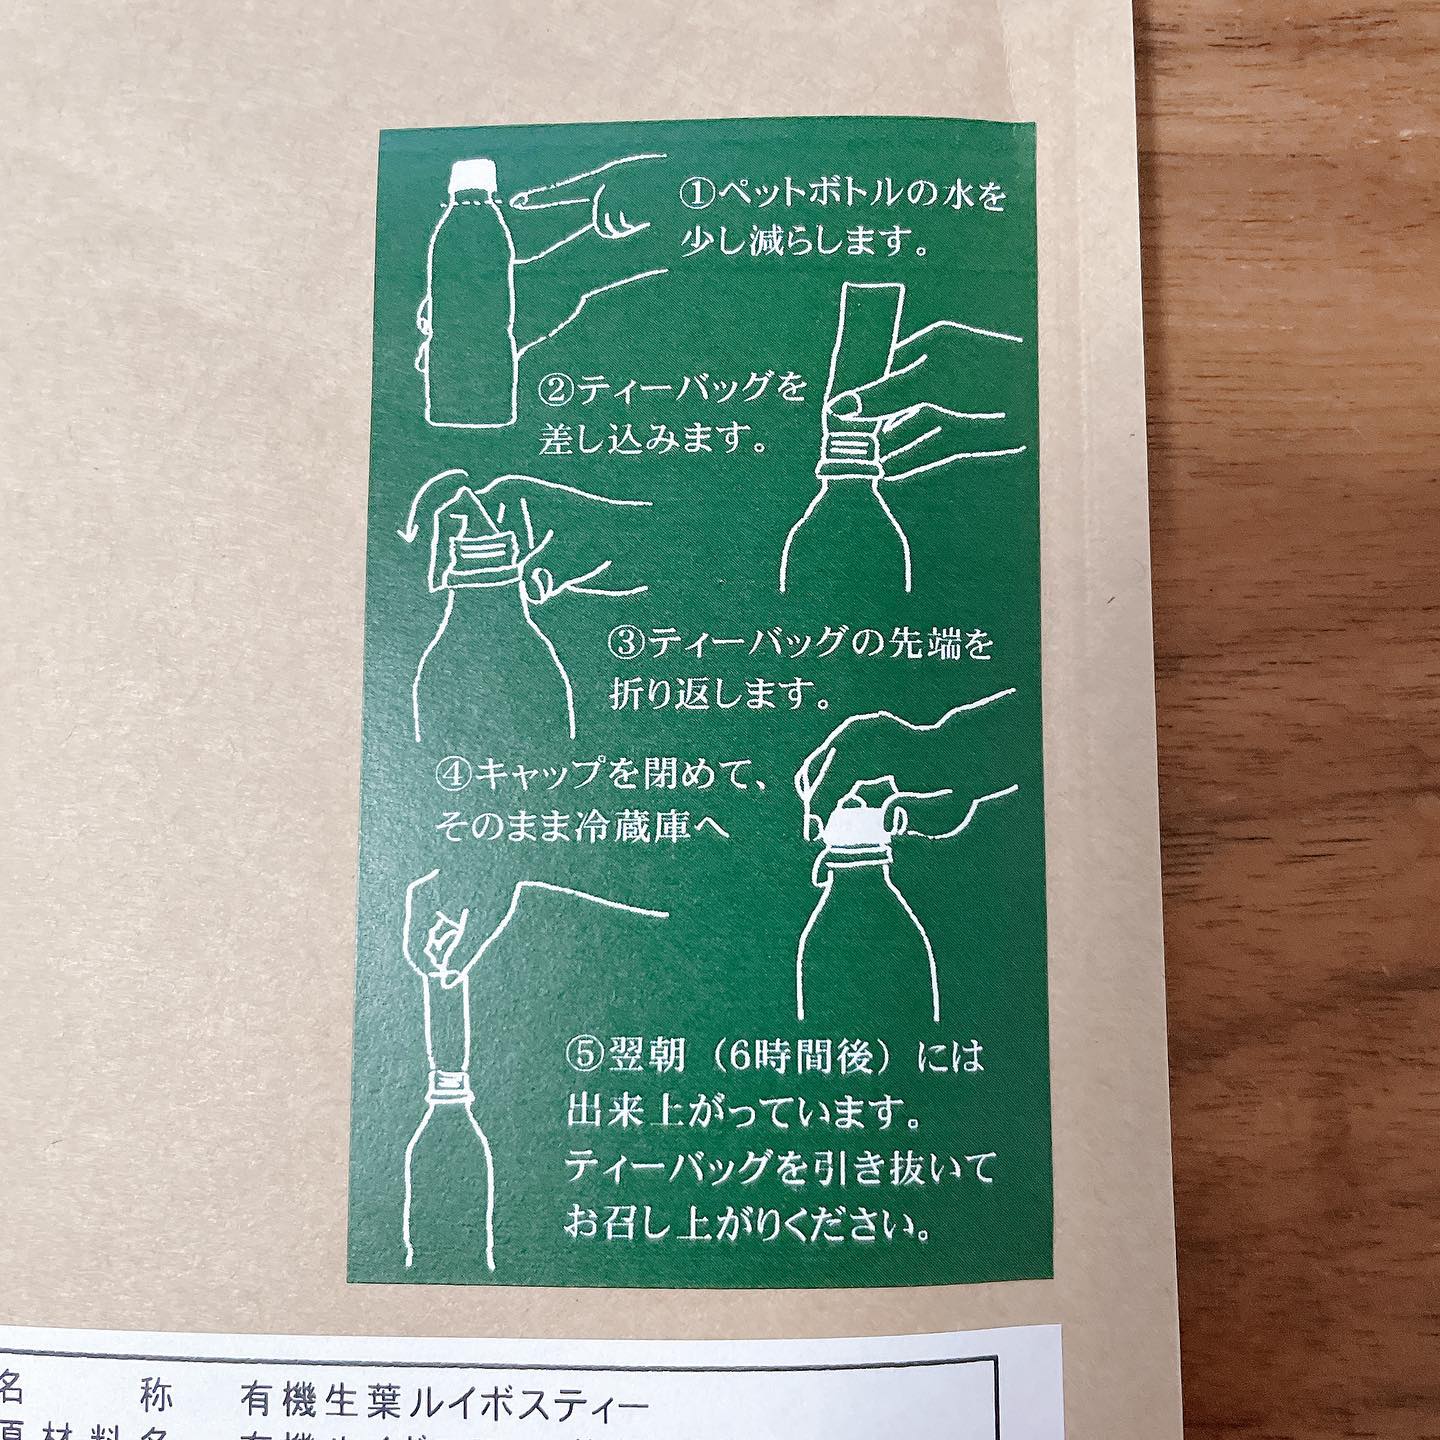 ①ペットボトルの水を
少し減らします。
②ティーバッグを
差し込みます。
③ティーバッグの先端を
折り返します。
④キャップを閉めて、
そのまま冷蔵庫へ
⑤翌朝（6時間後）には
出来上がっています。
ティーバッグを引き抜いて
お召し上がりください。
名称 有機生葉ルイボスティー
原材料名